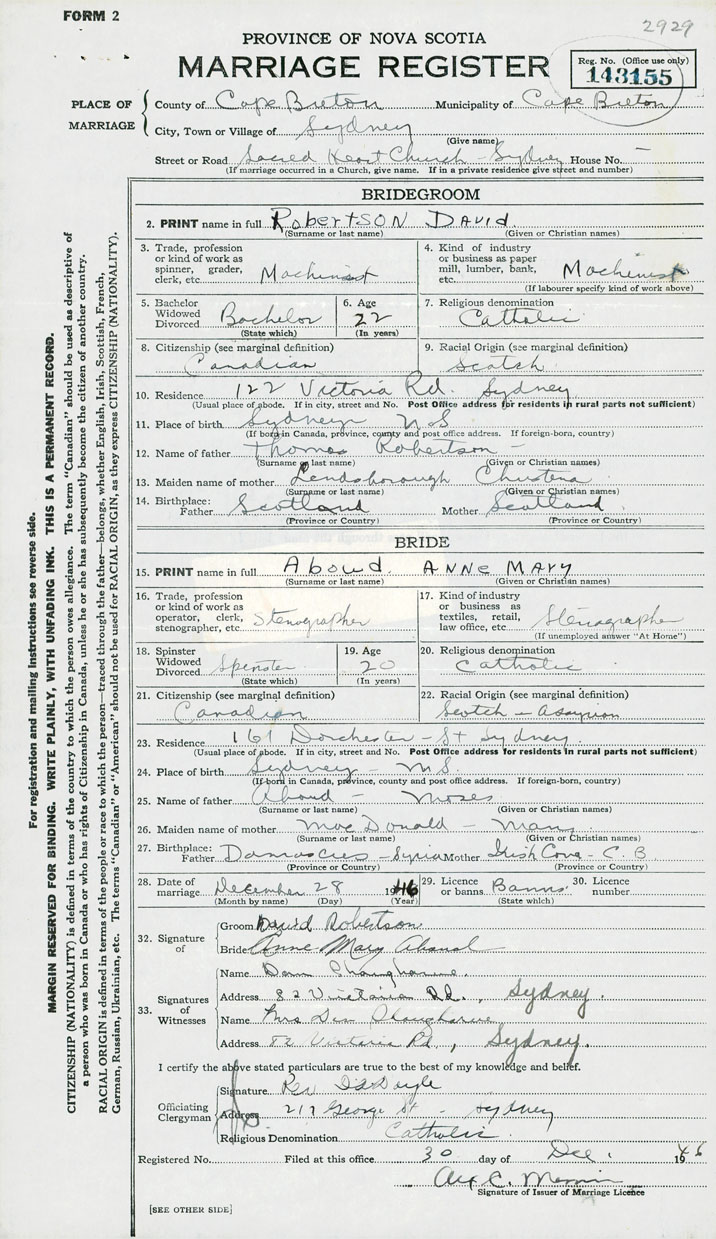 FORM 2
2929
PROVINCE OF NOVA SCOTIA
MARRIAGE REGISTER
Reg. No. (Office use only)
143155
PLACE OF MARRIAGE
County of Cape Breton Municipality of Cape Breton
City, Town or Village of Sydney
(Give name)
Street or Road Sacred Heart Church - Sydney House No. -
(If marriage occurred in a Church, give name. If in a private residence give street and number)
BRIDEGROOM
2. PRINT name in full ROBERTSON DAVID
(Surname or last name) (Given or Christian names)
3. Trade, profession or kind of work as spinner, grader, clerk, etc. Machinist
4. Kind of industry or business as paper mill, lumber, bank, etc. Machinist
(If labourer specify kind of work above)
5. Bachelor Widowed Divorced Bachelor
(State which)
6. Age 22
(In years)
7. Religious denomination Catholic
8. Citizenship (see marginal definition) Canadian
9. Racial Origin (see marginal definition) Scotch
10. Residence 122 Victoria Rd. Sydney
(Usual place of abode. If in city, street and No. Post Office address for residents in rural parts not sufficient)
11. Place of birth Sydney N S
(If born in Canada, province, county and post office address. If foreign-born, country)
12. Name of father Thomas Robertson
(Surname or last name) (Given or Christian names)
13. Maiden name of mother Christena
(Surname or last name) (Given or Christian names)
14. Birthplace: Father Scotland Mother Scotland
(Province or Country) (Province or Country)
BRIDE
15. PRINT name in full Aboud. ANNE MARY
(Surname or last name) (Given or Christian names)
16. Trade, profession or kind of work as operator, clerk, stenographer, etc. Stenographer
17. Kind of industry or business as textiles, retail, law office, etc. Stenographer
(If unemployed answer "At Home")
18. Spinster Widowed Divorced Spinster
(State which)
19. Age 20
(In years)
20. Religious denomination Catholic
21. Citizenship (see marginal definition) Canadian
22. Racial Origin (see marginal definition) Scotch - Assyrian
23. Residence 161 Dorchester - St Sydney
(Usual place of abode. If in city, street and No. Post Office address for residents in rural parts not sufficient)
24. Place of birth Sydney - N.S
(If born in Canada, province, county and post office address. If foreign-born, country)
25. Name of father Aboud - Moses
(Surname or last name) (Given or Christian names)
26. Maiden name of mother MacDonald - Mary
(Surname or last name) (Given or Christian names)
27. Birthplace: Father Damascus - Syria Mother Irish Cove - C. B
(Province or Country) (Province or Country)
28. Date of marriage December 28 1946
(Month by name) (Day) (Year)
29. Licence or banns Banns
(State which)
30. Licence number
32. Signature of
Groom David Robertson
Bride Anne Mary Aboud
33. Signatures of Witnesses
Name
Address 82 Victoria Rd., Sydney.
Name Mrs
Address 82 Victoria Rd., Sydney.
I certify the above stated particulars are true to the best of my knowledge and belief.
Officiating Clergyman
Signature Rev
Address 217 George St - Sydney
Religious Denomination Catholic
Registered No. Filed at this office 30 day of Dec. 1946
Alex C.
Signature of Issuer of Marriage Licence
[SEE OTHER SIDE]
For registration and mailing instructions see reverse side.
MARGIN RESERVED FOR BINDING. WRITE PLAINLY, WITH UNFADING INK. THIS IS A PERMANENT RECORD.
CITIZENSHIP (NATIONALITY) is defined in terms of the country to which the person owes allegiance. The term "Canadian" should be used as descriptive of
a person who was born in Canada or who has rights of Citizenship in Canada, unless he or she has subsequently become the citizen of another country.
RACIAL ORIGIN is defined in terms of the people or race to which the person—traced through the father—belongs, whether English, Irish, Scottish, French,
German, Russian, Ukrainian, etc. The terms "Canadian" or "American" should not be used for RACIAL ORIGIN, as they express CITIZENSHIP (NATIONALITY).